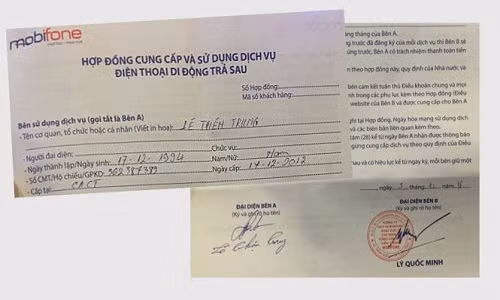 mobifone
HỢP ĐỒNG CUNG CẤP VÀ SỬ DỤNG DỊCH VỤ
ĐIỆN THOẠI DI ĐỘNG TRẢ SAU
Số Hợp đồng:
Mã số khách hàng:
Bên sử dụng dịch vụ (gọi tắt là Bên A)
- Tên cơ quan, tổ chức hoặc cá nhân (Viết in hoa): LÊ THIÊN TRUNG
- Người đại diện: Chức vụ:
- Ngày thành lập/Ngày sinh: 17-12-1994 Nam/Nữ: Nam
- Số CMT/Hộ chiếu/GPKD: Ngày cấp: 14-12-2012
- Cấp tại: CACT
tháng của Bên A.
trước đã đăng ký của mỗi dịch vụ thì Bên B sẽ
, Bên A có trách nhiệm thanh toán tiền
theo hợp đồng này, quy định của Nhà nước và
bên cam kết tuân thủ Điều khoản chung và mọi
trong các phụ lục kèm theo Hợp đồng (Điều
website của Bên B và được cung cấp cho Bên A
ghi tại Hợp đồng. Ngày hòa mạng sử dụng dịch
và các biên bản liên quan kèm theo.
tám (28) kể từ ngày Bên A nhận được thông báo
ngừng cung cấp dịch vụ theo quy định của Điều
nhau và có hiệu lực kể từ ngày ký, mỗi bên giữ một
ngày tháng
ĐẠI DIỆN BÊN A
(Ký và ghi rõ họ tên)
ĐẠI DIỆN BÊN B
(Ký và ghi rõ họ tên)
LÝ QUỐC MINH